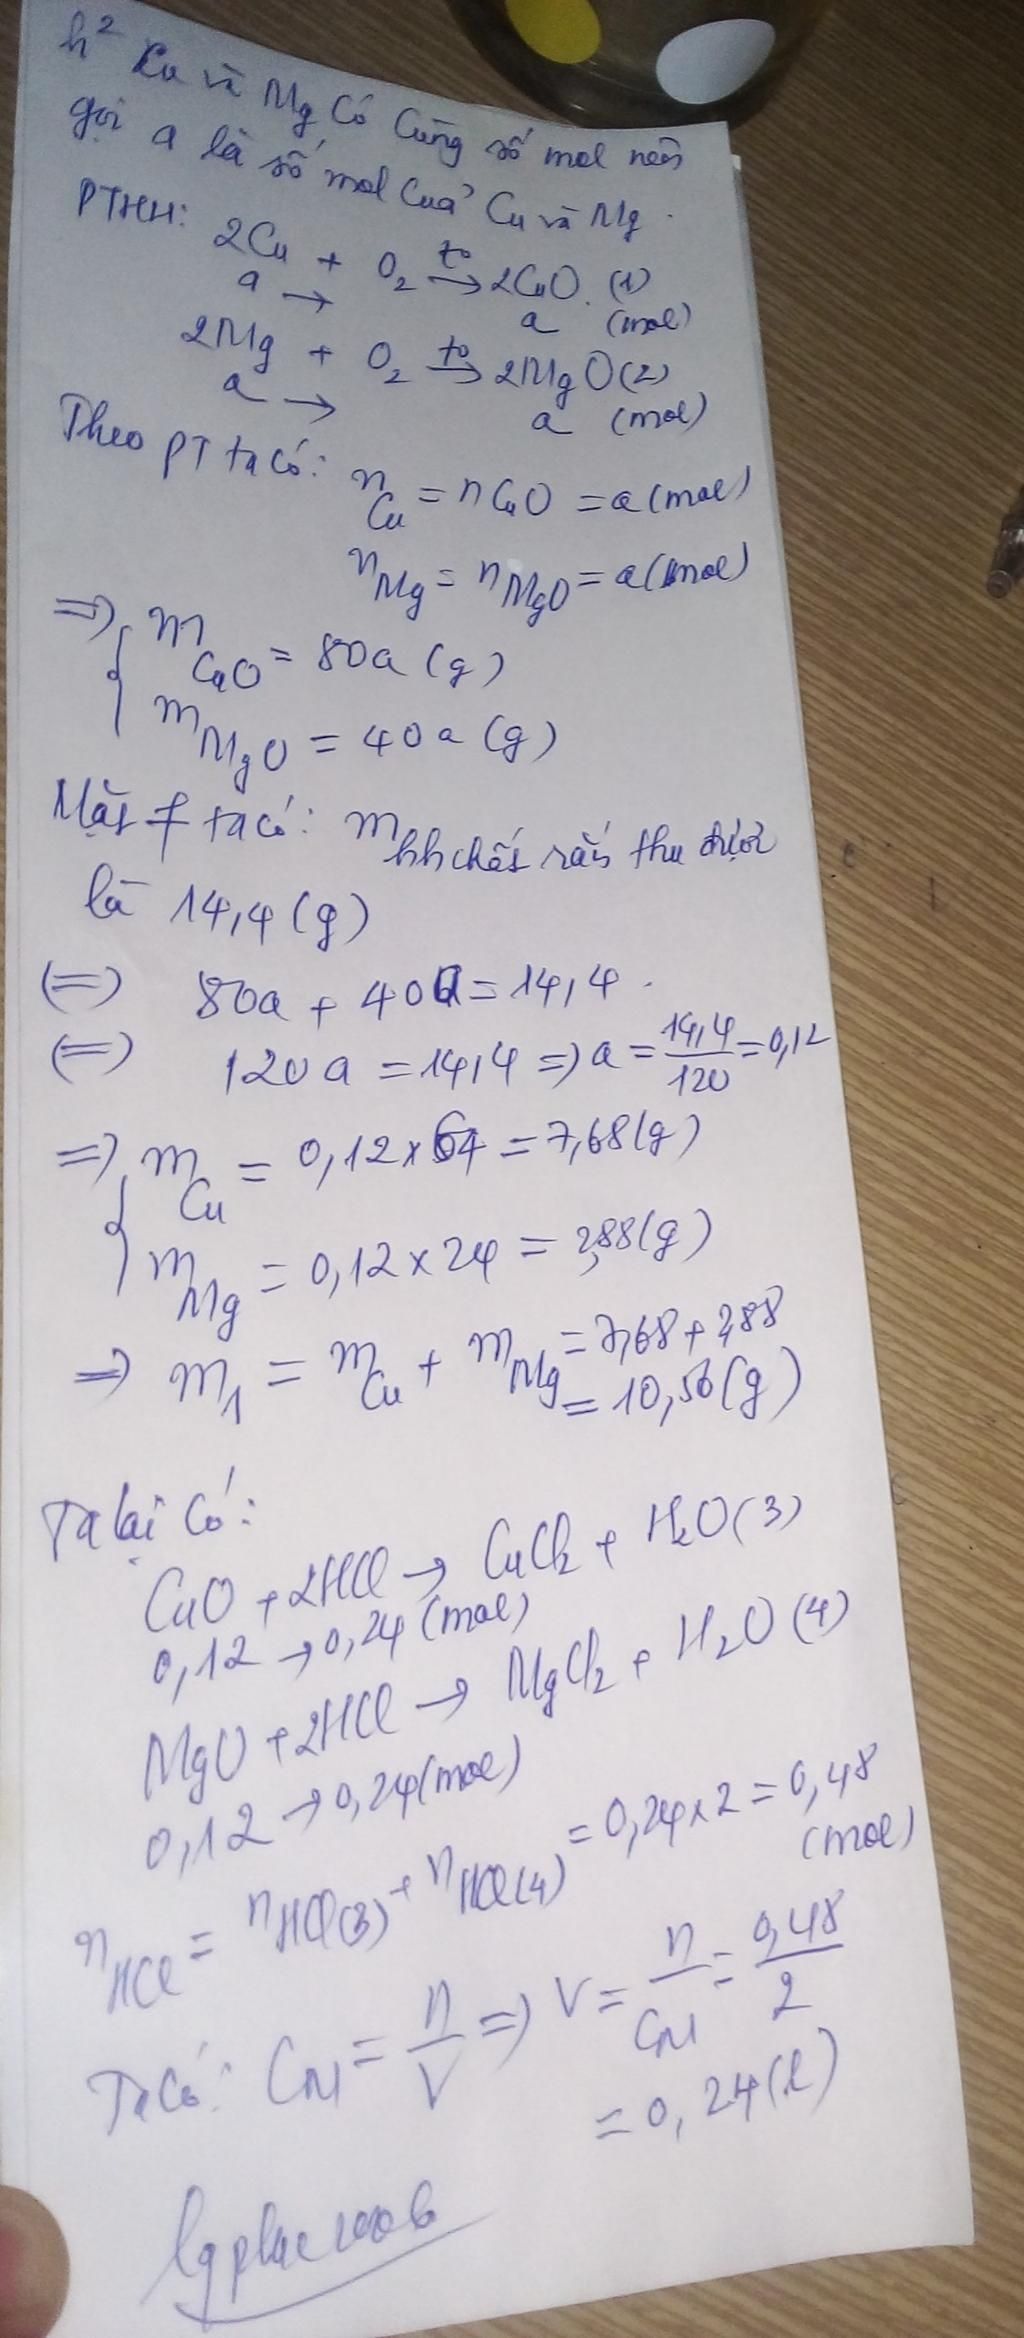 h² Cu và Mg có cùng số mol nên
gọi a là số mol của Cu và Mg.
PTHH: 2Cu + O₂ t° → 2CuO. (1)
a → a (mol)
2Mg + O₂ t° → 2MgO (2)
a → a (mol)
Theo PT ta có: n Cu = n CuO = a (mol)
n Mg = n MgO = a (mol)
=> { m CuO = 80a (g)
m MgO = 40a (g)
Mặt ≠ ta có: m hh chất rắn thu được
là 14,4 (g)
(=) 80a + 40a = 14,4.
(=) 120a = 14,4 => a = 14,4/120 = 0,12
=> { m Cu = 0,12 x 64 = 7,68 (g)
m Mg = 0,12 x 24 = 2,88 (g)
=> m₁ = m Cu + m Mg = 7,68 + 2,88
= 10,56 (g)
Ta lại có:
CuO + 2HCl → CuCl₂ + H₂O (3)
0,12 → 0,24 (mol)
MgO + 2HCl → MgCl₂ + H₂O (4)
0,12 → 0,24 (mol)
n HCl = n HCl(3) + n HCl(4) = 0,24 x 2 = 0,48
(mol)
Ta có: CM = n/V => V = n/CM = 0,48/2
= 0,24 (l)